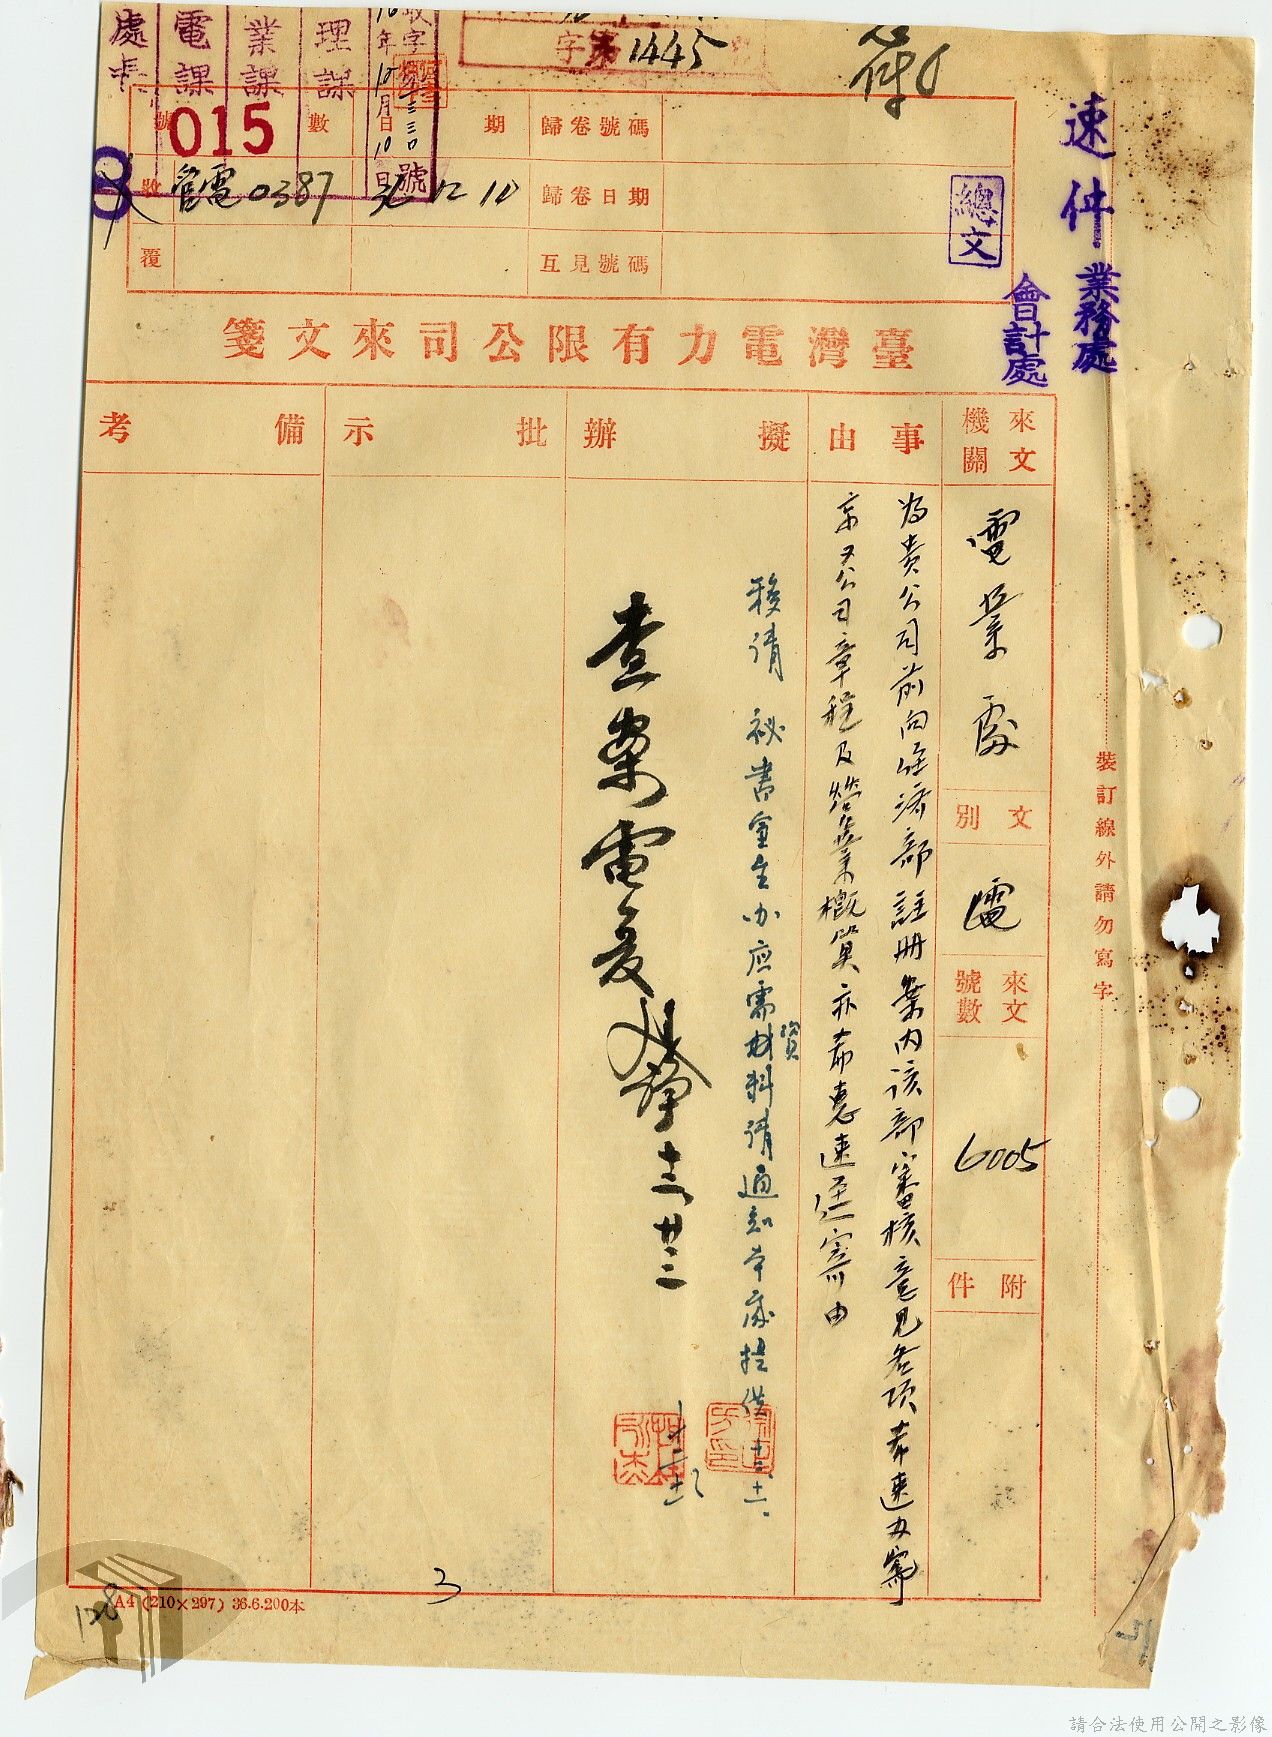 處長
電課
業課
理課
收字
號
年10月10日
字第1445號
號
015
數
日
期
歸卷號碼
收
管電0387
36 12 10
歸卷日期
覆
互見號碼
總文
速件
業務處
會計處
臺灣電力有限公司來文箋
來文機關
事由
擬辦
批示
備考
電業處
文別
電
來文號數
6005
附件
為貴公司前向經濟部註冊案內該部審核意見各項希速办寄
京又公司章程及營業概算亦希惠速逕寄由
移請 祕書室主办应需資料請通知本處提供 十二、十一、
查案電复
十二 廿三
裝訂線外請勿寫字
3
128
A4 (210×297) 36.6.200本
請合法使用公開之影像